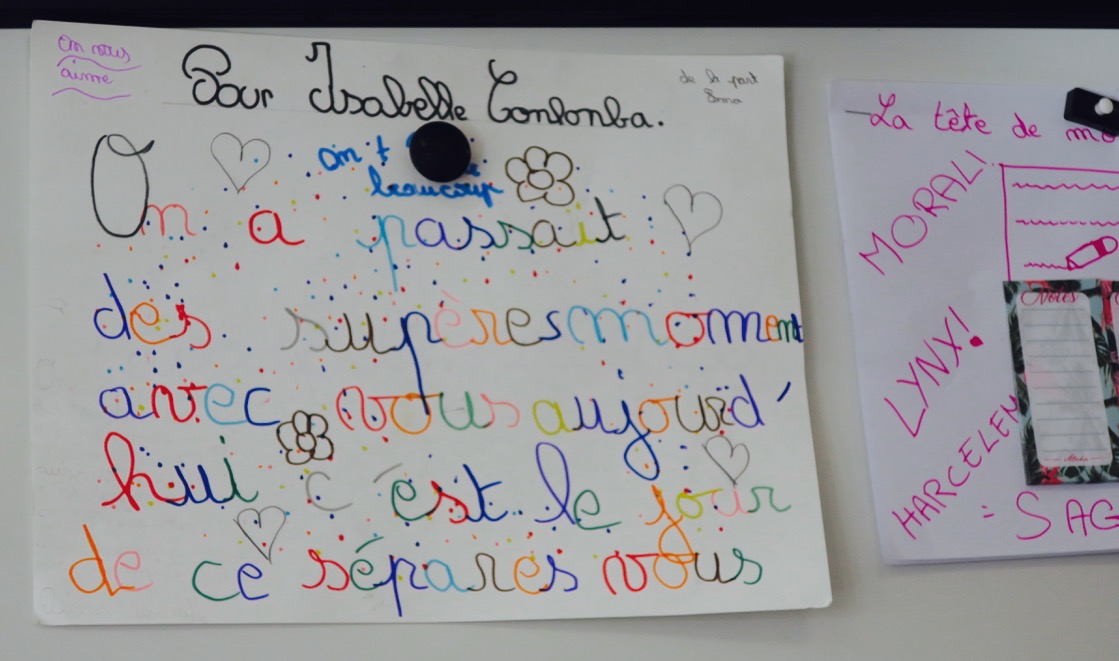 On vous
aime
Pour Isabelle
de la part
On
beaucoup
On a passait
des supères moment
avec vous aujourd'
hui c'est le jour
de ce sépares vous
La tête de
MORAL!
LYNX!
HARCELEM
= SAG
Notes